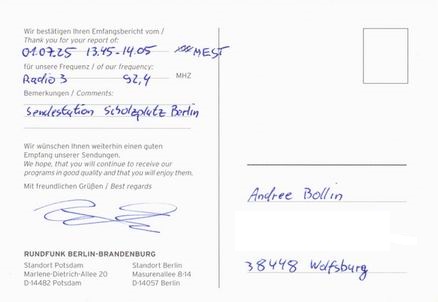 Wir bestätigen Ihren Empfangsbericht vom /
Thank you for your report of:
01.07.25 13.45-14.05 MEST
für unsere Frequenz / of our frequency:
Radio 3 92,4 MHZ
Bemerkungen / Comments:
Sendestation Scholzplatz Berlin
Wir wünschen Ihnen weiterhin einen guten
Empfang unserer Sendungen.
We hope, that you will continue to receive our
programs in good quality and that you will enjoy them.
Mit freundlichen Grüßen / Best regards
RUNDFUNK BERLIN-BRANDENBURG
Standort Potsdam Standort Berlin
Marlene-Dietrich-Allee 20 Masurenallee 8-14
D-14482 Potsdam D-14057 Berlin
Andree Bollin
38448 Wolfsburg